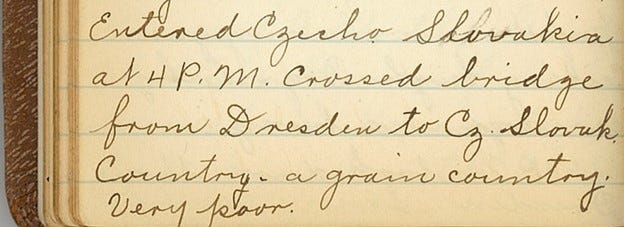 Entered Czecho Slovakia
at 4 P.M. Crossed bridge
from Dresden to Cz. Slovak.
Country - a grain country.
Very poor.